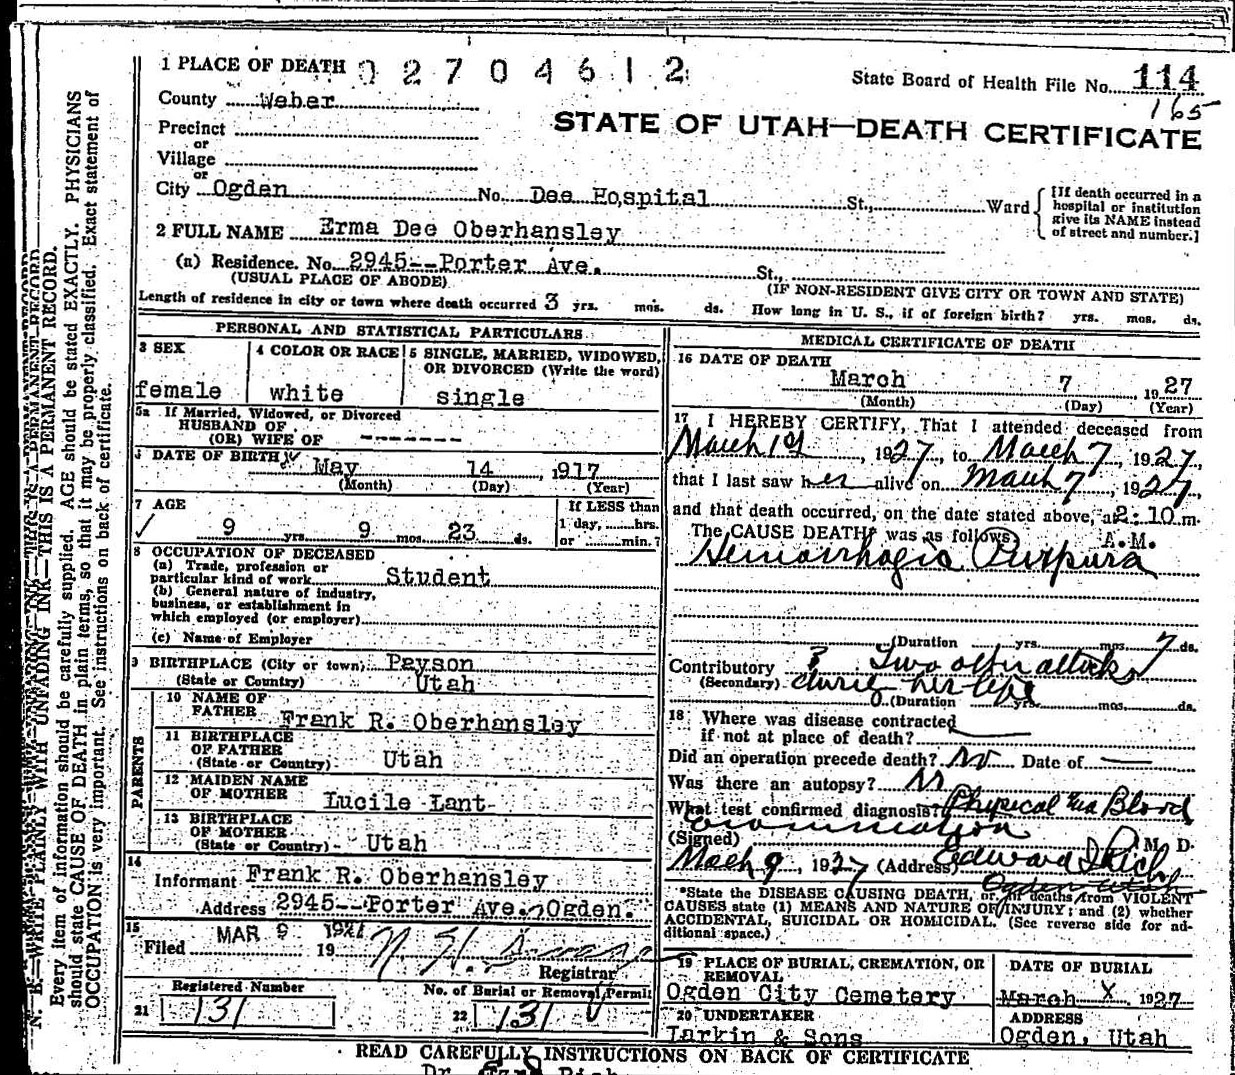 1 PLACE OF DEATH 02704612
State Board of Health File No. 114
165
County Weber
STATE OF UTAH—DEATH CERTIFICATE
Precinct
or
Village
or
City Ogden No. Dee Hospital St., Ward
[If death occurred in a
hospital or institution
give its NAME instead
of street and number.]
2 FULL NAME Erma Dee Oberhansley
(a) Residence. No. 2945--Porter Ave. St.,
(USUAL PLACE OF ABODE) (IF NON-RESIDENT GIVE CITY OR TOWN AND STATE)
Length of residence in city or town where death occurred 3 yrs. mos. ds. How long in U. S., if of foreign birth? yrs. mos. ds.
PERSONAL AND STATISTICAL PARTICULARS
3 SEX 4 COLOR OR RACE 5 SINGLE, MARRIED, WIDOWED,
OR DIVORCED (Write the word)
female white single
5a If Married, Widowed, or Divorced
HUSBAND OF
(OR) WIFE OF -------
DATE OF BIRTH May 14 1917
(Month) (Day) (Year)
7 AGE If LESS than
1 day, hrs.
9 yrs. 9 mos. 23 ds. or min.?
8 OCCUPATION OF DECEASED
(a) Trade, profession or
particular kind of work Student
(b) General nature of industry,
business, or establishment in
which employed (or employer)
(c) Name of Employer
9 BIRTHPLACE (City or town) Payson
(State or Country) Utah
PARENTS
10 NAME OF
FATHER Frank R. Oberhansley
11 BIRTHPLACE
OF FATHER
(State or Country) Utah
12 MAIDEN NAME
OF MOTHER Lucile Lant
13 BIRTHPLACE
OF MOTHER
(State or Country) Utah
14
Informant Frank R. Oberhansley
Address 2945--Porter Ave., Ogden.
15
Filed MAR 9 1927 19
Registrar
Registered Number No. of Burial or Removal Permit
21 131 22 131
MEDICAL CERTIFICATE OF DEATH
16 DATE OF DEATH
March 7 1927
(Month) (Day) (Year)
17 I HEREBY CERTIFY, That I attended deceased from
March 1st, 1927, to March 7, 1927,
that I last saw her alive on March 7, 1927,
and that death occurred, on the date stated above, at 2:10 m.
The CAUSE DEATH was as follows A.M.
Hemorrhagic Purpura
(Duration yrs. mos. 7 ds.
Contributory ? Two other attacks
(Secondary) during her life
(Duration yrs. mos. ds.
18 Where was disease contracted
if not at place of death?
Did an operation precede death? No Date of —
Was there an autopsy? No
What test confirmed diagnosis? Physical and Blood
examination
(Signed) Edward I Rich M D.
March 9, 1927 (Address) Ogden Utah
*State the DISEASE CAUSING DEATH, or in deaths from VIOLENT
CAUSES state (1) MEANS AND NATURE OF INJURY; and (2) whether
ACCIDENTAL, SUICIDAL OR HOMICIDAL. (See reverse side for ad-
ditional space.)
19 PLACE OF BURIAL, CREMATION, OR
REMOVAL
DATE OF BURIAL
Ogden City Cemetery March X 1927
20 UNDERTAKER ADDRESS
Larkin & Sons Ogden, Utah
READ CAREFULLY INSTRUCTIONS ON BACK OF CERTIFICATE
Dr.
N. B.—WRITE PLAINLY WITH UNFADING INK—THIS IS A PERMANENT RECORD.
Every item of information should be carefully supplied. AGE should be stated EXACTLY. PHYSICIANS
should state CAUSE OF DEATH in plain terms, so that it may be properly classified. Exact statement of
OCCUPATION is very important. See instructions on back of certificate.